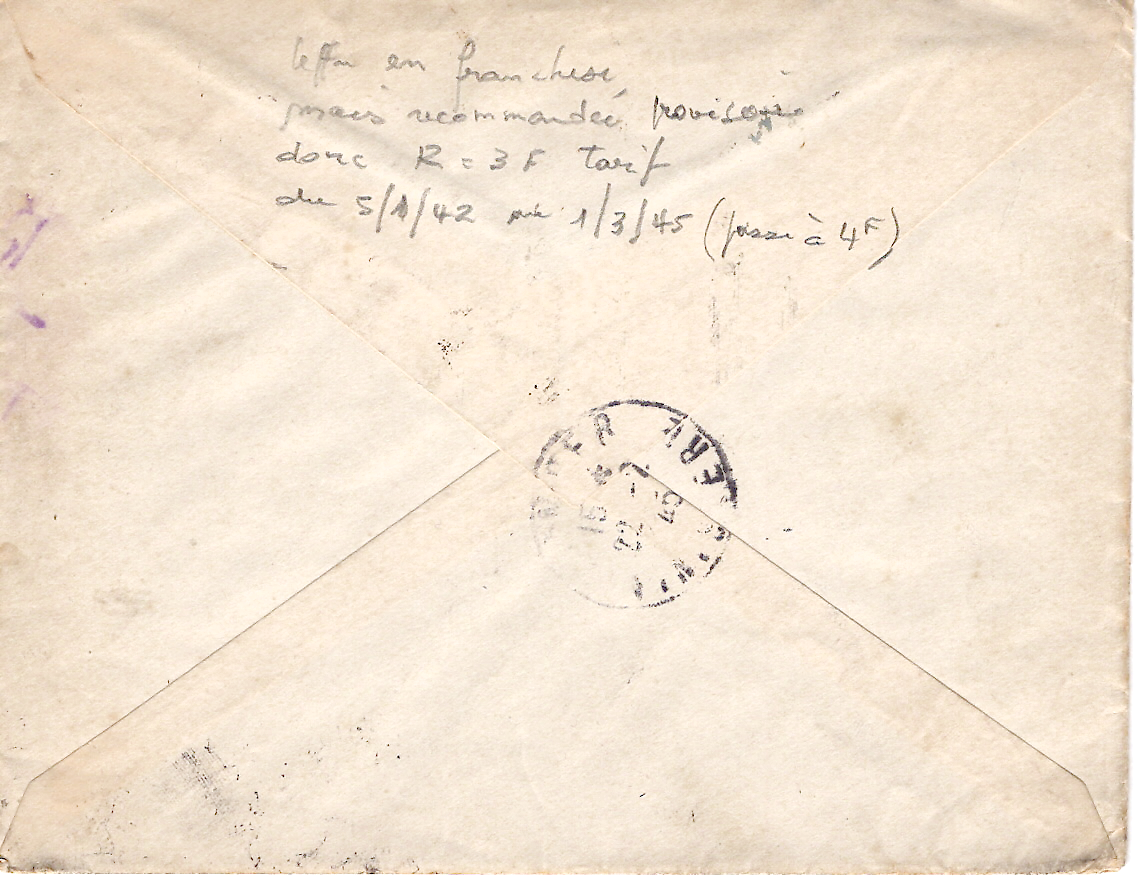 lettre en franchise,
mais recommandée, provisoire
donc R = 3 F tarif
du 5/1/42 au 1/3/45 (passé à 4F)